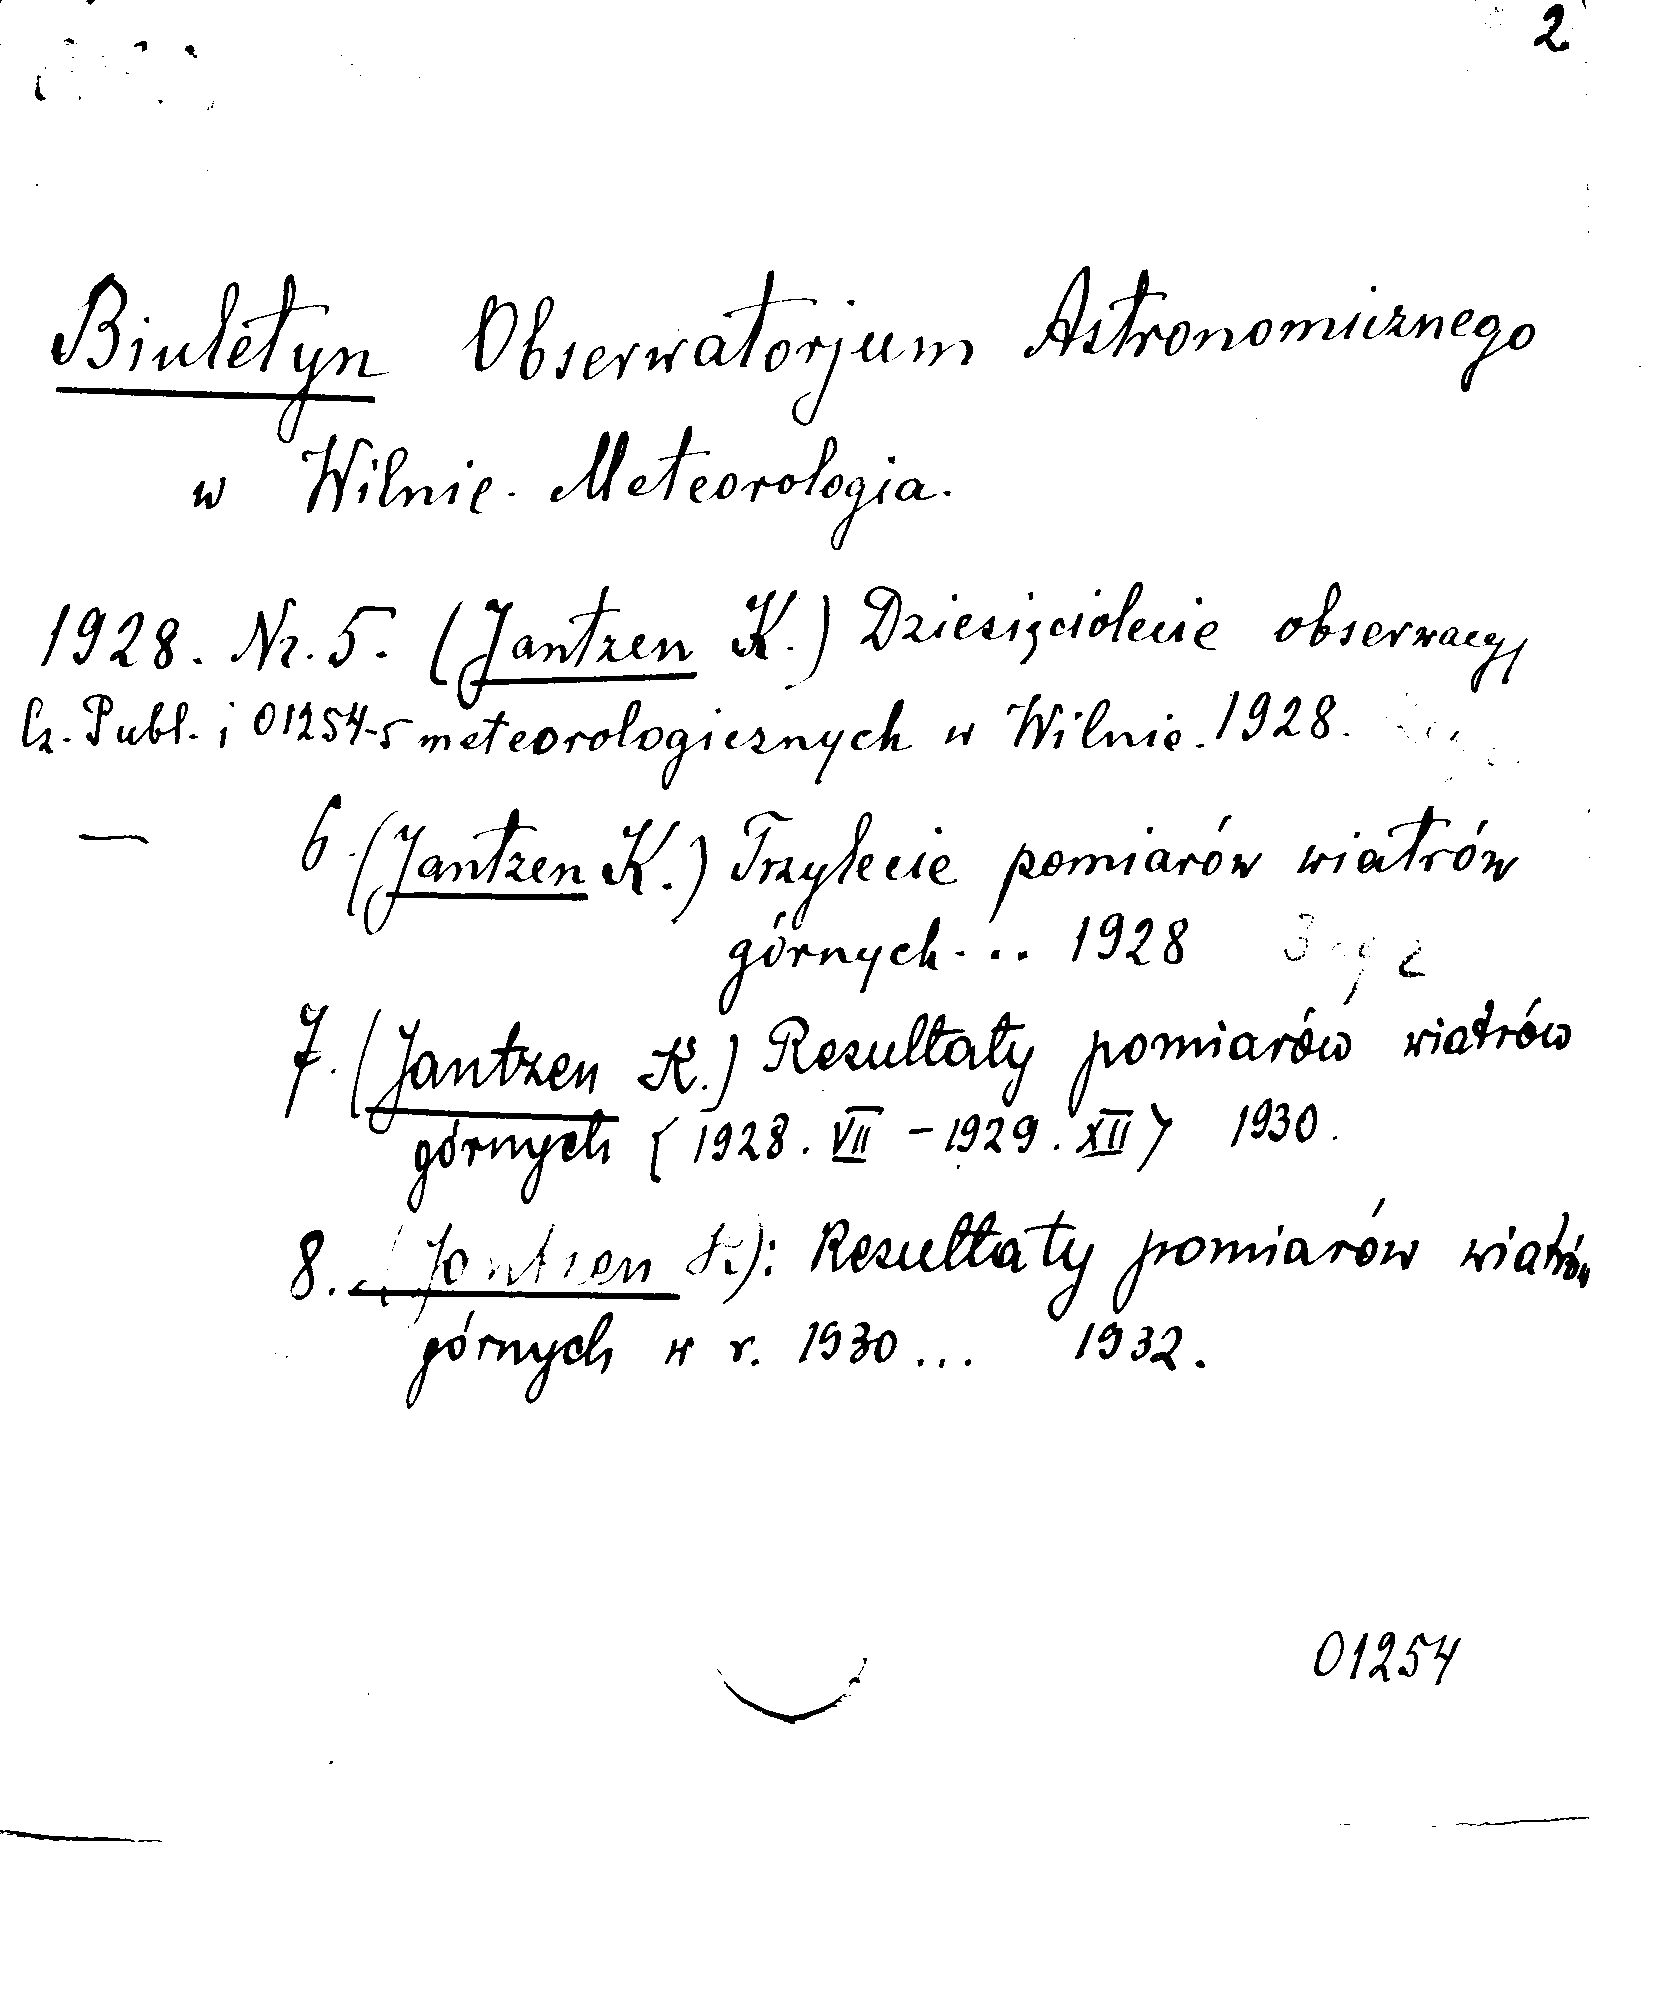 2
Biuletyn Obserwatorjum Astronomicznego
w Wilnie. Meteorologia.
1928. Nr. 5. (Jantzen K.) Dziesięciolecie obserwacyj
Cz. Publ. i 01254-5 meteorologicznych w Wilnie. 1928.
— 6. (Jantzen K.) Trzylecie pomiarów wiatrów
górnych... 1928
7. (Jantzen K.) Rezultaty pomiarów wiatrów
górnych (1928. VII - 1929. XII) 1930.
8. (Jantzen K): Rezultaty pomiarów wiatrów
górnych w r. 1930... 1932.
01254